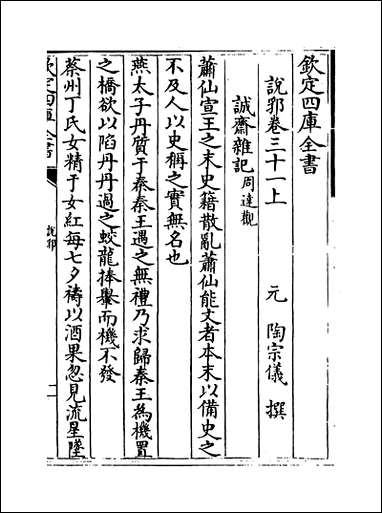 欽定四庫全書
說郛卷三十一上
元 陶宗儀 撰
誠齋雜記周達觀
蕭仙宣王之末史籍散亂蕭仙能文者本末以備史之
不及人以史稱之實無名也
燕太子丹質于秦秦王遇之無禮乃求歸秦王為機置
之橋欲以陷丹丹過之蛟龍捧轝而機不發
蔡州丁氏女精于女紅每七夕禱以酒果忽見流星墜
欽定四庫全書
說郛